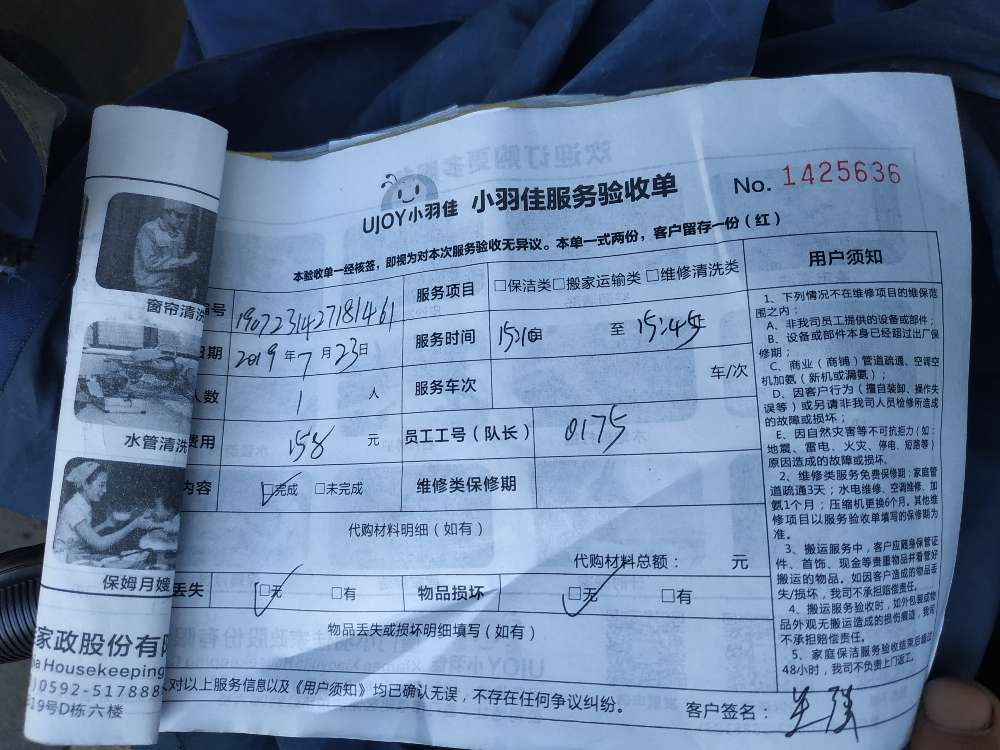 UJOY小羽佳 小羽佳服务验收单
No. 1425636
本验收单一经核签，即视为对本次服务验收无异议。本单一式两份，客户留存一份（红）
编号 190723142718146 1
服务项目 □保洁类□搬家运输类□维修清洗类
日期 2019年7月23日
服务时间 15:10 至 15:45
人数 1 人
服务车次 车/次
费用 158 元
员工工号（队长） 0175
内容 □完成 □未完成
维修类保修期
代购材料明细（如有）
代购材料总额： 元
丢失 □无 □有
物品损坏 □无 □有
物品丢失或损坏明细填写（如有）
对以上服务信息以及《用户须知》均已确认无误，不存在任何争议纠纷。
客户签名：
用户须知
1、下列情况不在维修项目的维保范
围之内：
A、非我司员工提供的设备或部件；
B、设备或部件本身已经超过出厂保
修期；
C、商业（商铺）管道疏通、空调空
机加氨（新机或漏氨）；
D、因客户行为（擅自装卸、操作失
误等）或另请非我司人员检修所造成
的故障或损坏；
E、因自然灾害等不可抗拒力（如：
地震、雷电、火灾、停电、短路等）
原因造成的故障或损坏。
2、维修类服务免费保修期：家庭管
道疏通3天；水电维修、空调维修、加
氨1个月；压缩机更换6个月。其他维
修项目以服务验收单填写的保修期为
准。
3、搬运服务中，客户应随身保管证
件、首饰、现金等贵重物品并看管好
搬运的物品。如因客户造成的物品丢
失/损坏，我司不承担赔偿责任。
4、搬运服务验收时，如外包装或物
品外观无搬运造成的损伤痕迹，我司
不承担赔偿责任。
5、家庭保洁服务验收结束后超过
48小时，我司不负责上门返工。
窗帘清洗
水管清洗
保姆月嫂
家政股份有限
Housekeeping
0592-517888
19号D栋六楼
欢迎订购更多